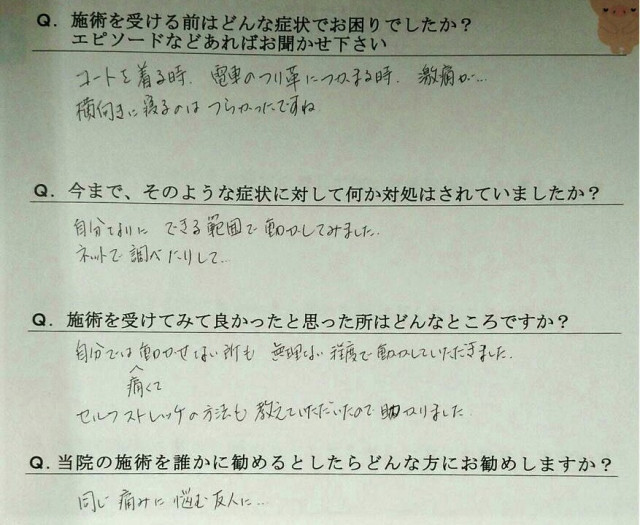 Q. 施術を受ける前はどんな症状でお困りでしたか？
エピソードなどあればお聞かせ下さい
コートを着る時、電車のつり革につかまる時、激痛が…
横向きに寝るのはつらかったですね。
Q. 今まで、そのような症状に対して何か対処はされていましたか？
自分なりに できる範囲で動かしてみました。
ネットで調べたりして…
Q. 施術を受けてみて良かったと思った所はどんなところですか？
自分では動かせない所も 無理ない程度で動かしていただきました。
痛くて
セルフストレッチの方法も教えていただいたので助かりました。
Q. 当院の施術を誰かに勧めるとしたらどんな方にお勧めしますか？
同じ痛みに悩む友人に…